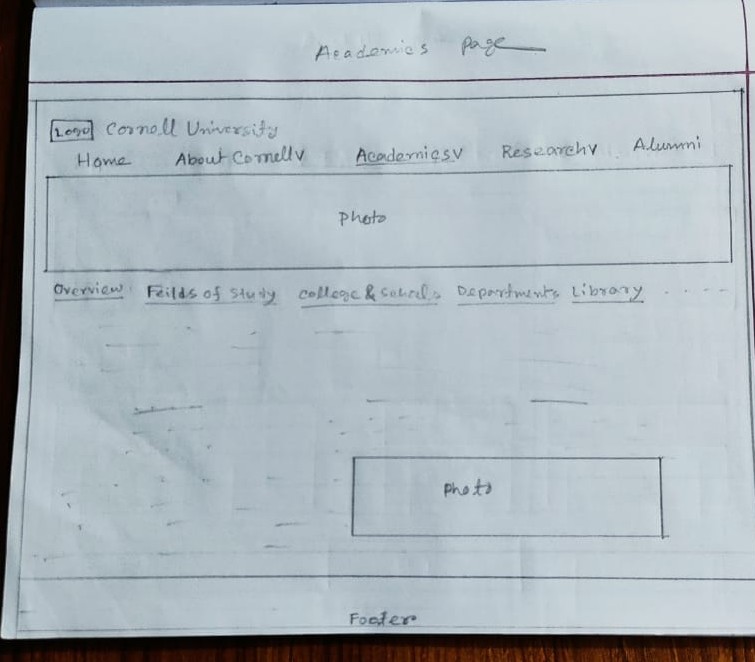 Academics page
Logo Cornell University
Home About Cornell v Academics v Research v Alumni
Photo
Overview Feilds of study college & schools Departments Library
Photo
Footer